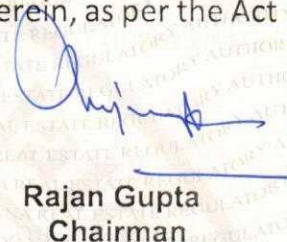 erein, as per the Act
Rajan Gupta
Chairman